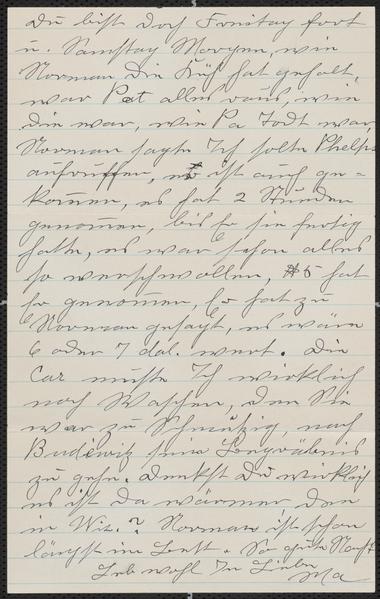 Du bist doch Freitag fort
u. Samstag Morgen, wie
Norman die Küh hat geholt,
war Pet alles raus, wie
die war, wie Pa Todt war,
Norman sagte Ich solte Phelps
aufruffen, er ist auch ge-
kommen, es hat 2 Stunden
genommen, bis er sie fertig
hatte, es war schon alles
so verschwollen, $5 hat
er genommen, Er hat zu
Norman gesagt, es wäre
6 oder 7 dol. wert. Die
Car mußte Ich wirklich
noch Waschen, den Sie
war zu Schmutzig, nach
Budewitz seine Begräbnis
zu gehn. Denkst Du wirklich
es ist da wärmer den
in Wis.? Norman ist schon
längst im Bett. So gute Nacht
Leb wohl In Liebe
Ma